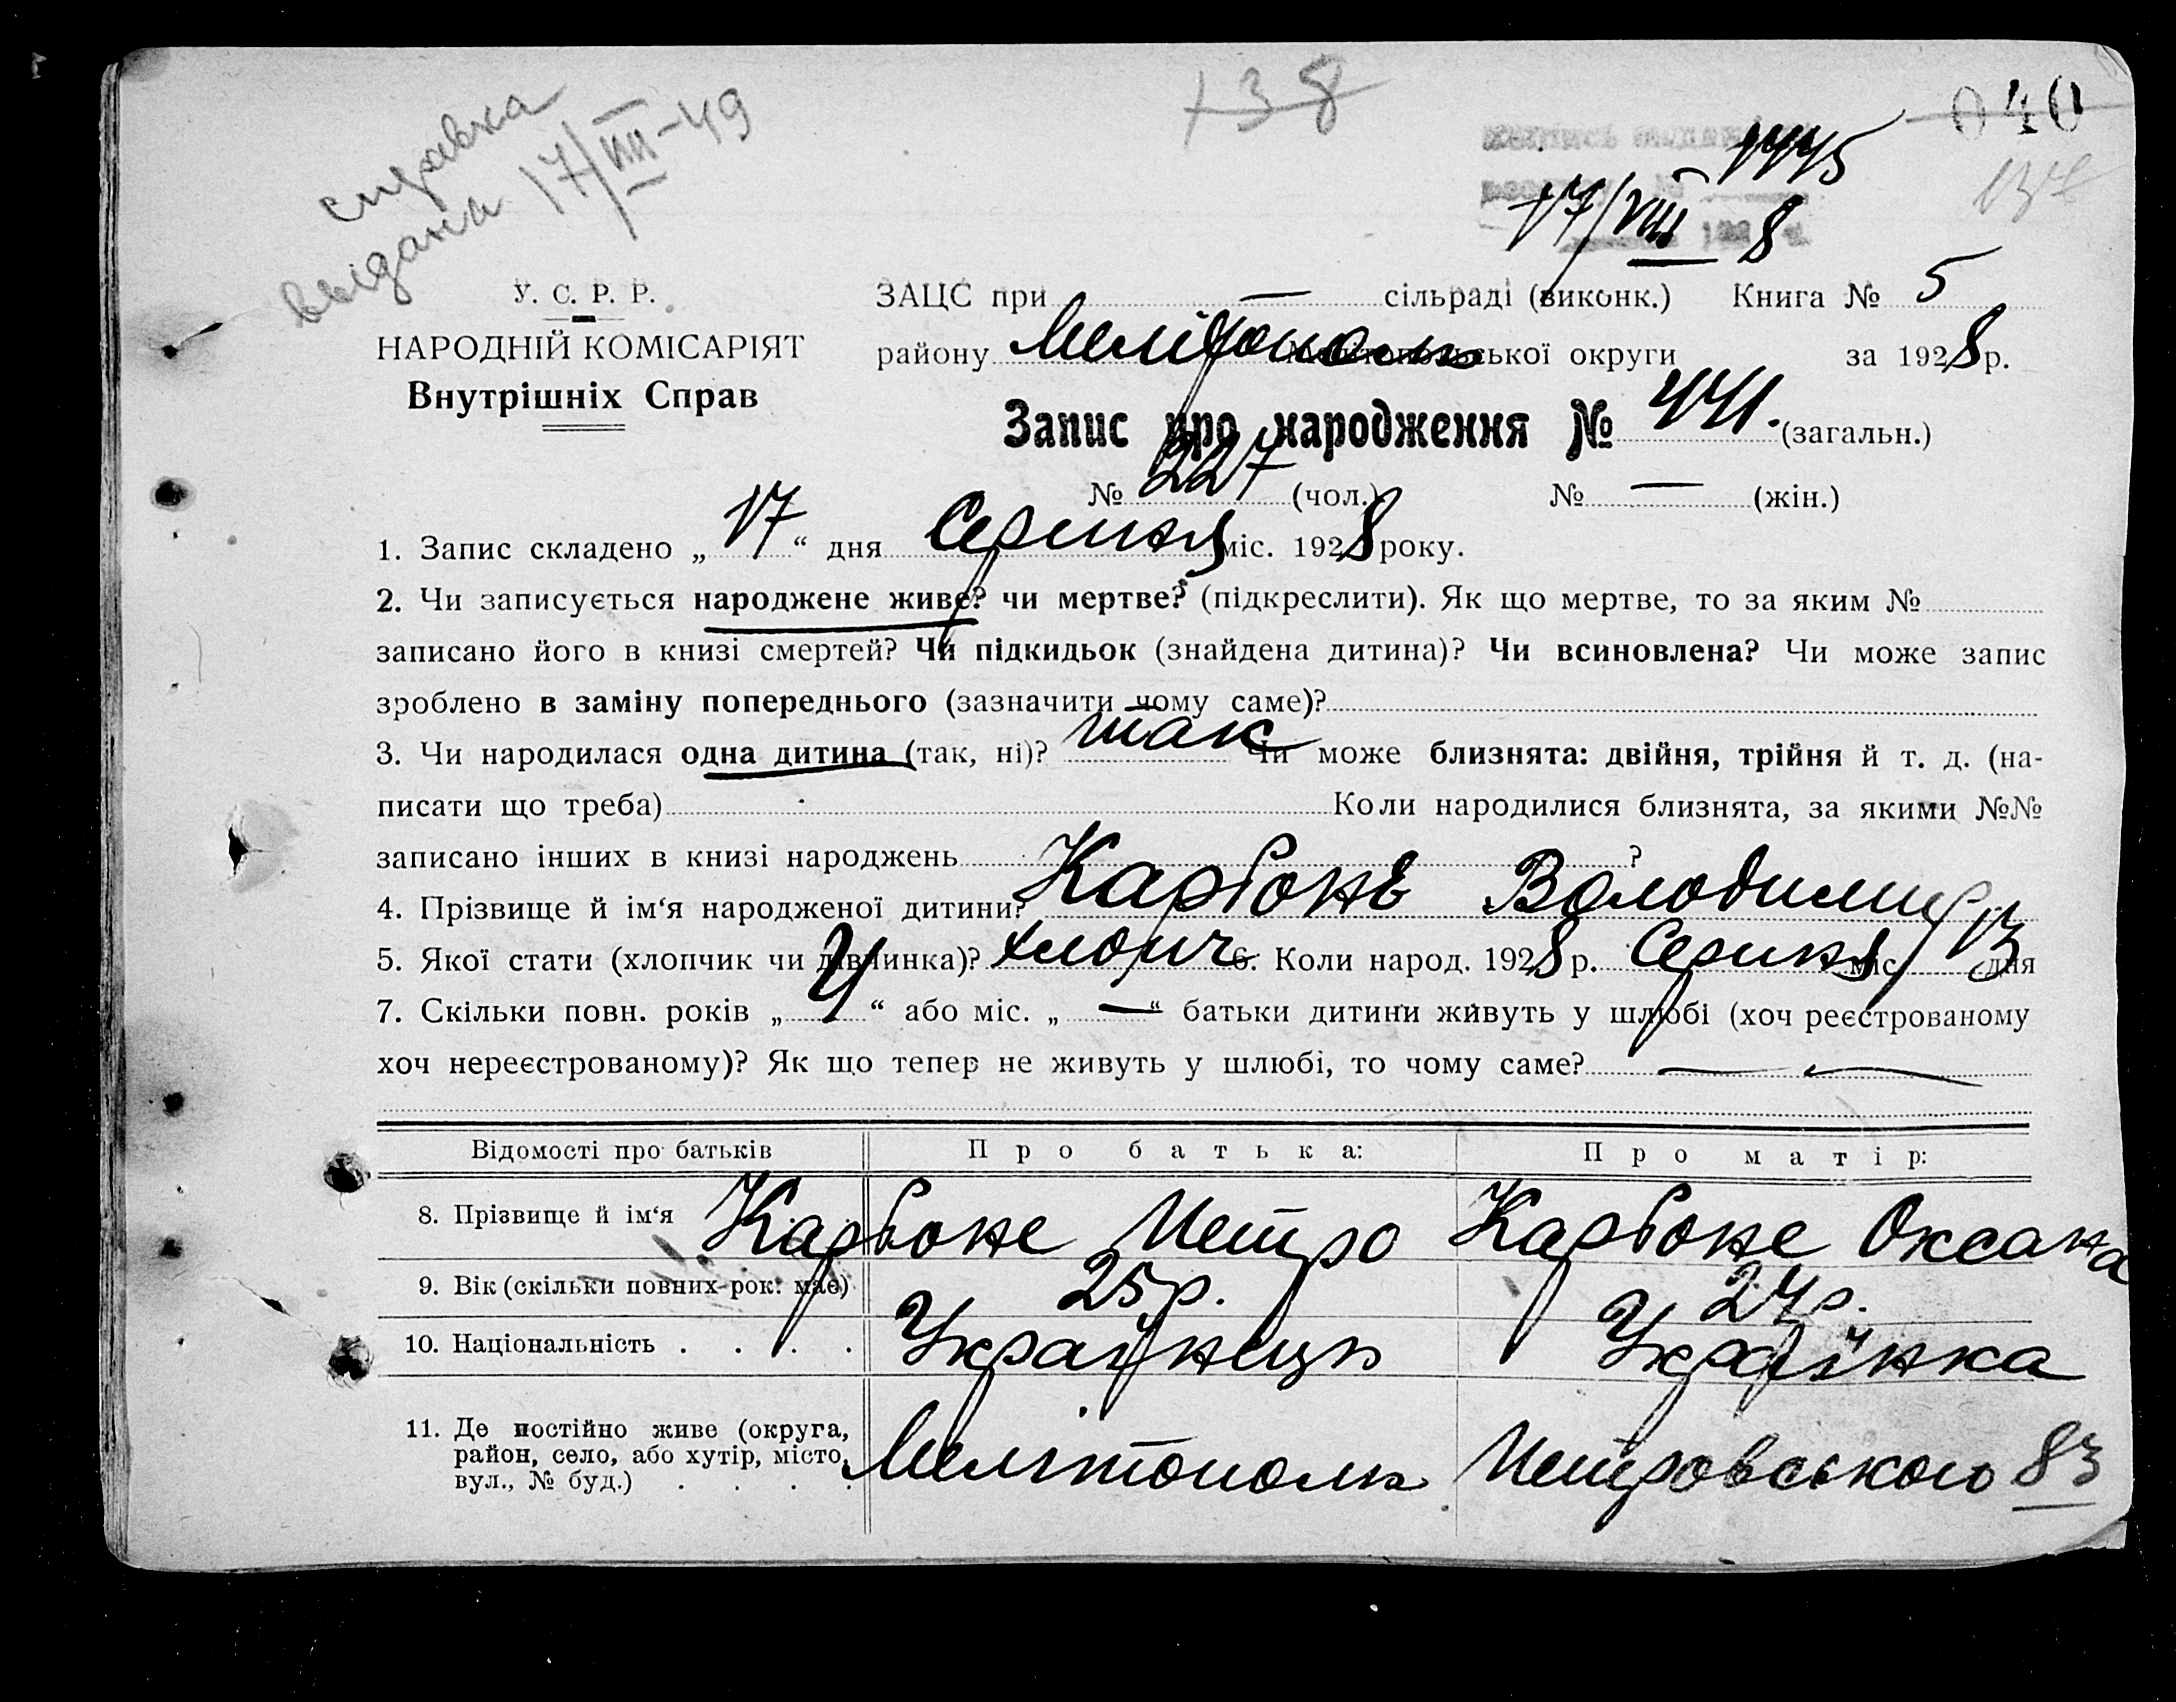 справка
выдана 17/VIII-49
138
040
1445
17/VIII 8
У. С. Р. Р.
НАРОДНІЙ КОМІСАРІЯТ
Внутрішніх Справ
ЗАЦС при — сільраді (виконк.) Книга № 5
району Мелітополь Мелітопольської округи за 1928 р.
Запис про народження № 441. (загальн.)
№ 227 (чол.) № — (жін.)
1. Запис складено „ 17 “ дня Серпня міс. 1928 року.
2. Чи записується народжене живе? чи мертве? (підкреслити). Як що мертве, то за яким №
записано його в книзі смертей? Чи підкидьок (знайдена дитина)? Чи всиновлена? Чи може запис
зроблено в заміну попереднього (зазначити чому саме)?
3. Чи народилася одна дитина (так, ні)? так Чи може близнята: двійня, трійня й т. д. (на-
писати що треба) Коли народилися близнята, за якими №№
записано інших в книзі народжень ?
4. Прізвище й ім‘я народженої дитини? Карбоне Володимир
5. Якої стати (хлопчик чи дівчинка)? хлопч 6. Коли народ. 1928 р. Серпня міс. 13 дня
7. Скільки повн. років „ 4 “ або міс. „ — “ батьки дитини живуть у шлюбі (хоч реєстрованому
хоч нереєстрованому)? Як що тепер не живуть у шлюбі, то чому саме? — —
Відомості про батьків Про батька: Про матір:
8. Прізвище й ім‘я Карбоне Петро Карбоне Оксана
9. Вік (скільки повних рок. має) 25 р. 24 р.
10. Національність . . . . Українець Українка
11. Де постійно живе (округа,
район, село, або хутір, місто,
вул., № буд.) . . . . Мелітополь Петровського 83